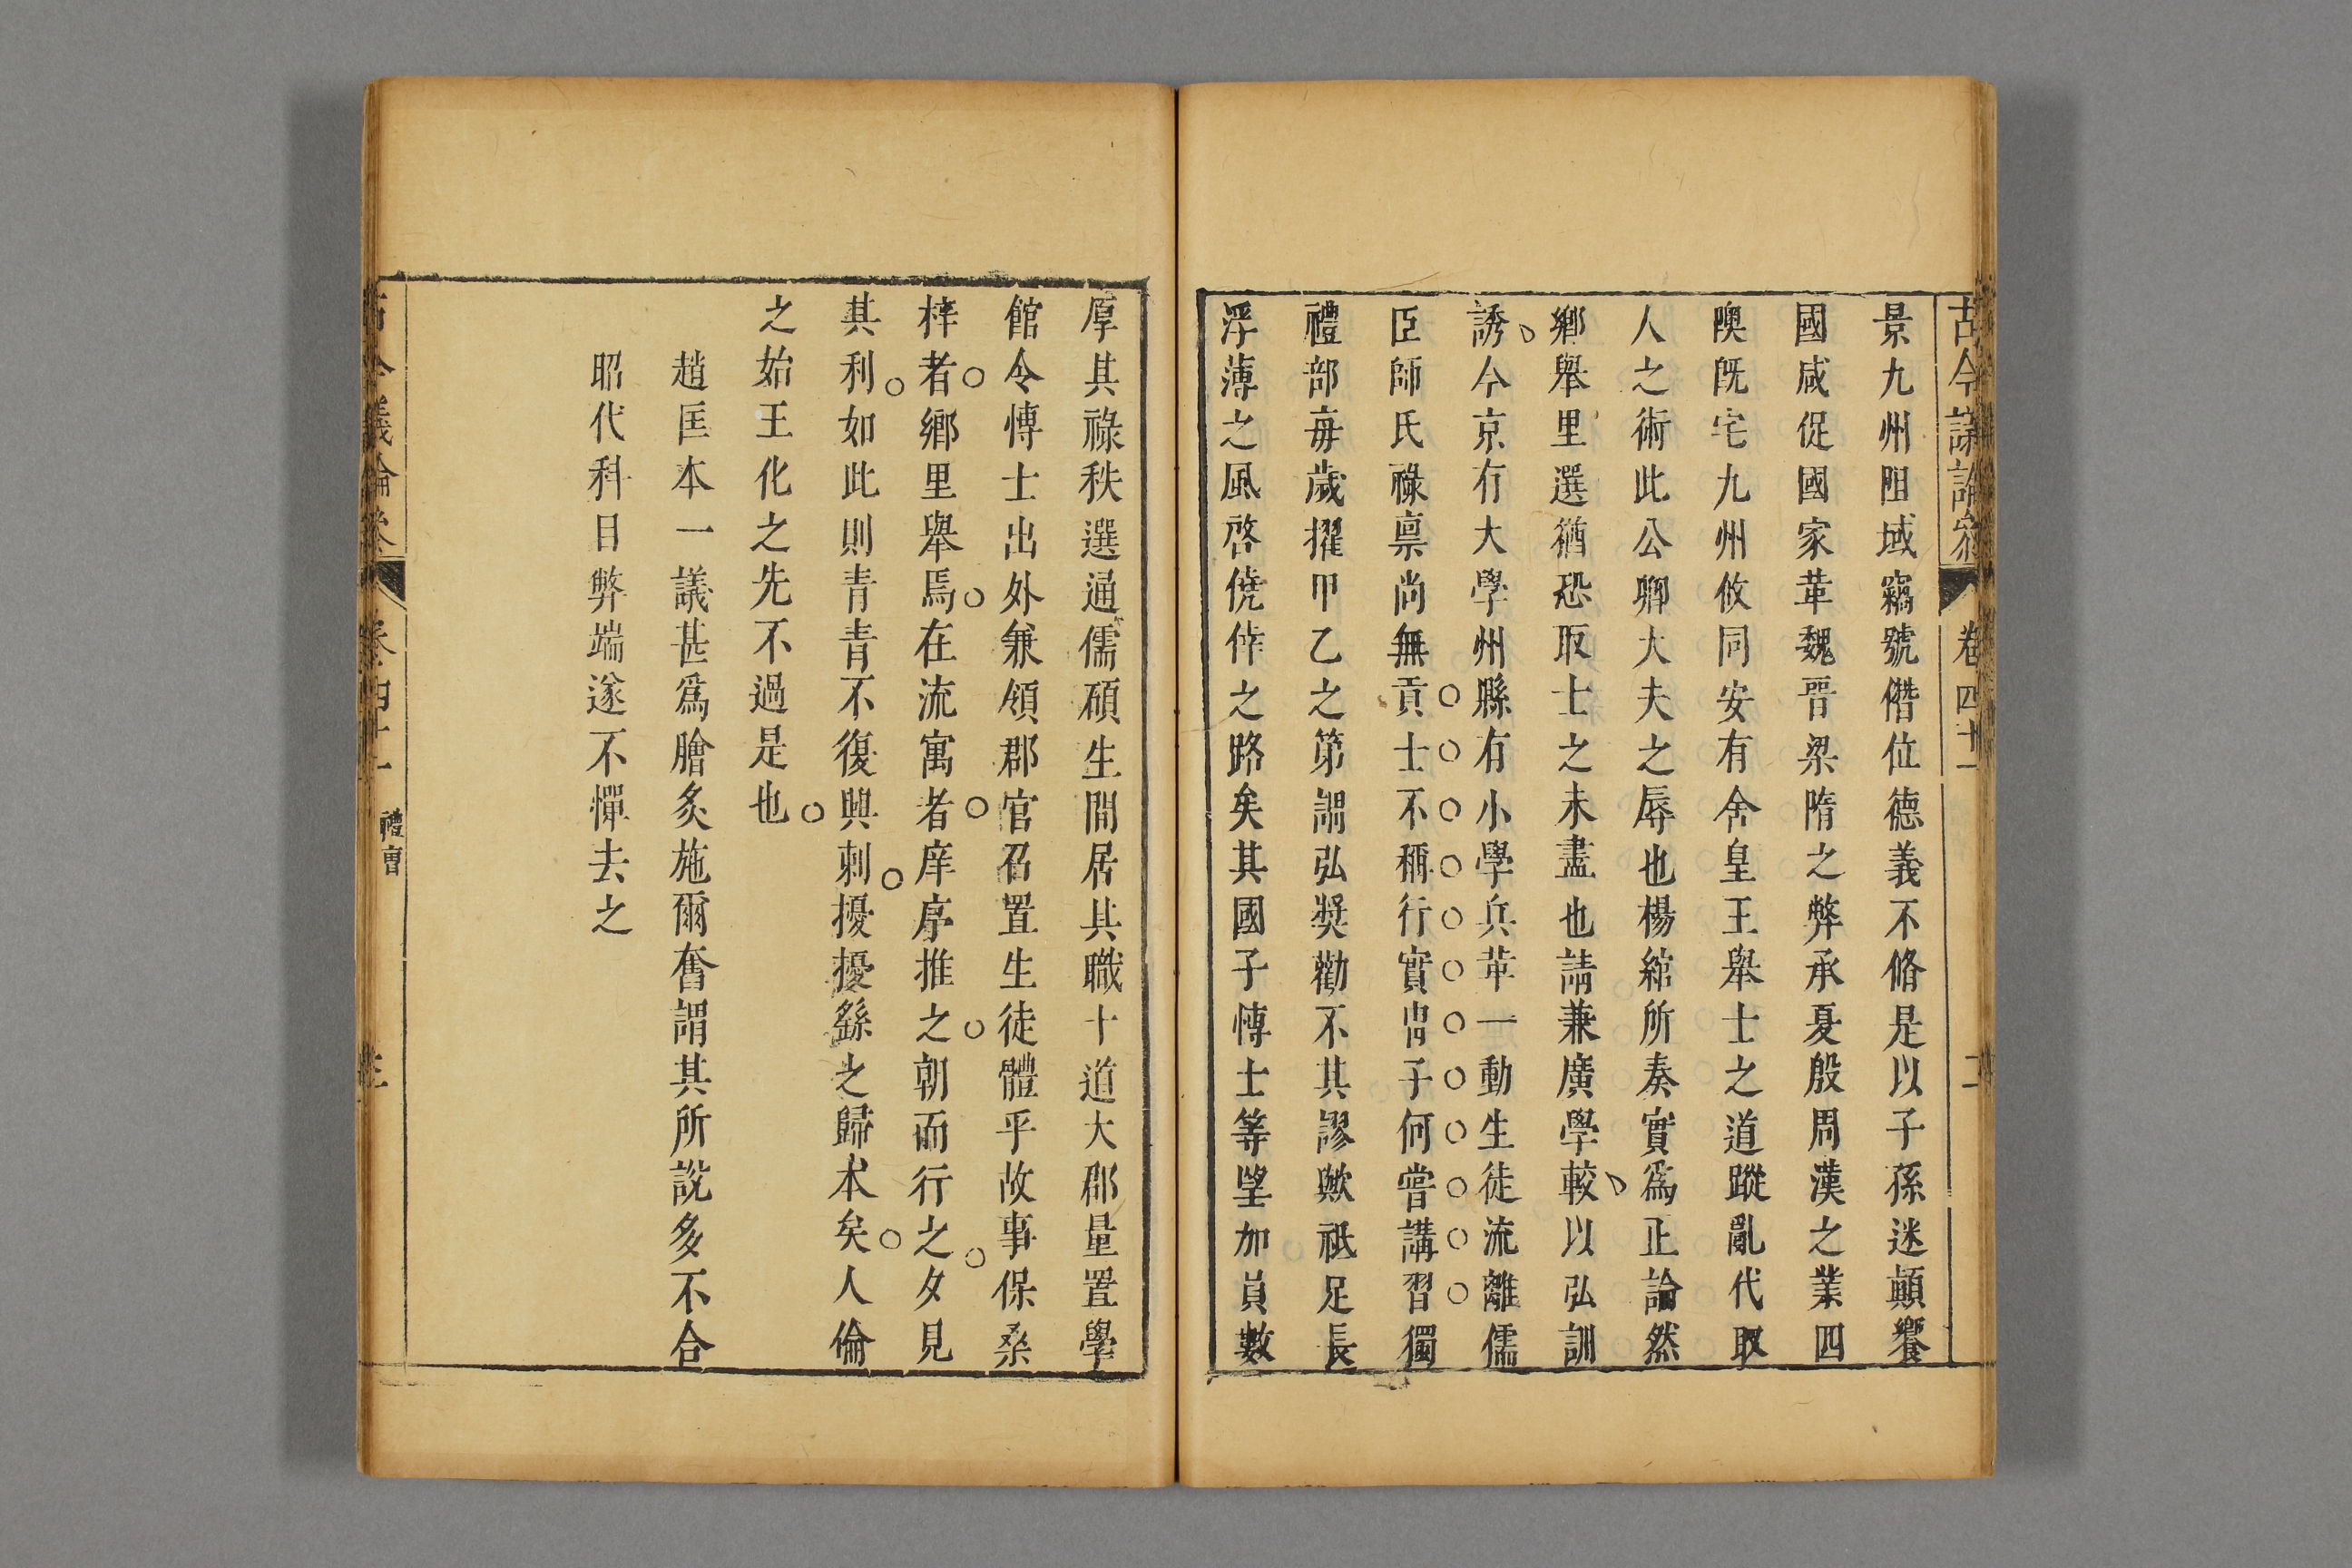 古今議論參
卷四十一
二
景九州阻域竊號僭位德義不脩是以子孫迷顛饗
國咸促國家革魏晉梁隋之弊承夏殷周漢之業四
隩旣宅九州攸同安有舍皇王舉士之道蹤亂代取
人之術此公卿大夫之辱也楊綰所奏實爲正論然
鄉舉里選猶恐取士之未盡也請兼廣學較以弘訓
誘今京有大學州縣有小學兵革一動生徒流離儒
臣師氏祿禀尚無貢士不稱行實冑子何嘗講習獨
禮部每歲擢甲乙之第謂弘獎勸不其謬歟祇足長
浮薄之風啓僥倖之路矣其國子愽士等望加員數
厚其祿秩選通儒碩生間居其職十道大郡量置學
館令愽士出外兼領郡官召置生徒體乎故事保桑
梓者鄉里舉焉在流寓者庠序推之朝而行之夕見
其利如此則青青不復興刺擾擾繇之歸本矣人倫
之始王化之先不過是也
趙匡本一議甚爲膾炙施爾奮謂其所說多不合
昭代科目弊端遂不憚去之
古今議論參
卷四十一
禮曹